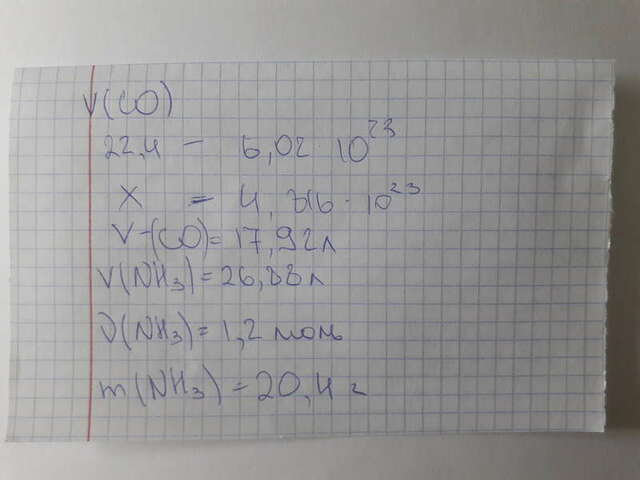 V(CO)
22,4 - 6,02 · 10²³
X = 4,816 · 10²³
V-(CO)=17,92л
V(NH₃)=26,88л
ν(NH₃)=1,2 моль
m(NH₃)=20,4 г